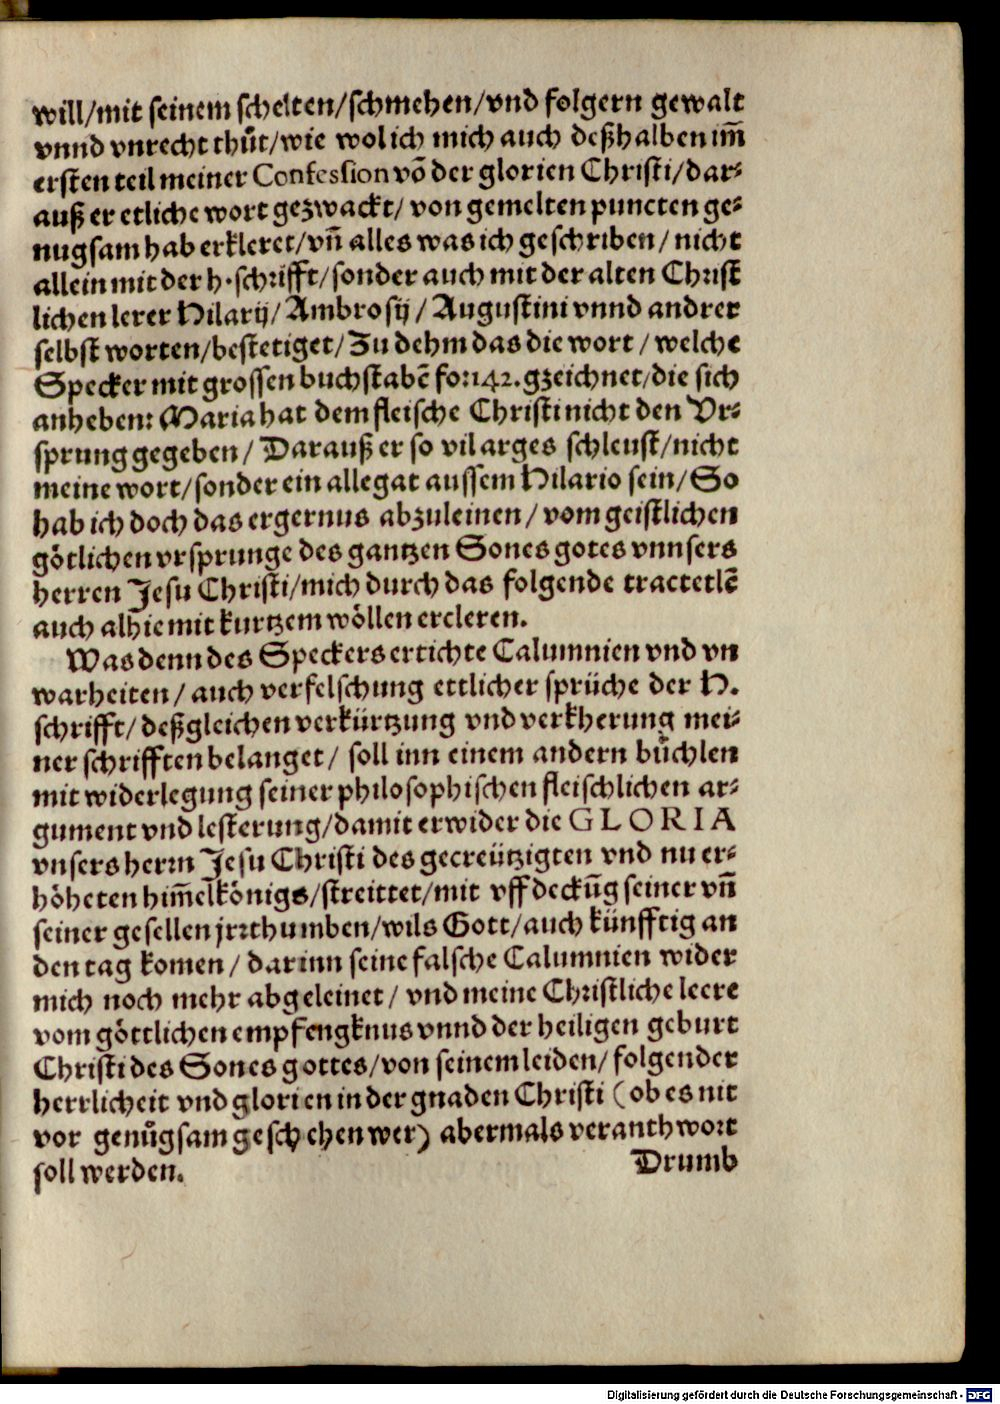 will/mit seinem schelten/schmehen/vnd folgern gewalt
vnnd vnrecht thůt/wie wol ich mich auch deßhalben im̃
ersten teil meiner Confession võ der glorien Christi/dar⸗
auß er etliche wort gezwackt/ von gemelten puncten ge⸗
nugsam hab erkleret/vñ alles was ich geschriben/ nicht
allein mit der h. schrifft/sonder auch mit der alten Christ
lichen lerer Hilarij/ Ambrosij/ Augustini vnnd andrer
selbst worten/bestetiget/ Zu dehm das die wort/ welche
Specker mit grossen buchstabẽ fo: 142. gzeichnet/die sich
anheben: Maria hat dem fleische Christi nicht den Vr⸗
sprung gegeben/ Darauß er so vil arges schleust/nicht
meine wort/sonder ein allegat aussem Hilario sein/ So
hab ich doch das ergernus abzuleinen/ vom geistlichen
götlichen vrsprunge des gantzen Sones gotes vnnsers
herren Jesu Christi/mich durch das folgende tractetlẽ
auch alhie mit kurtzem wöllen ercleren.
Was denn des Speckers ertichte Calumnien vnd vn
warheiten/ auch verfelschung ettlicher sprüche der H.
schrifft/ deßgleichen verkürtzung vnd verkherung mei⸗
ner schrifften belanget/ soll inn einem andern bůchlen
mit widerlegung seiner philosophischen fleischlichen ar⸗
gument vnd lesterung/damit er wider die GLORIA
vnsers herrn Jesu Christi des gecreützigten vnd nu er⸗
höheten him̃elkönigs/streittet/mit vffdeckũg seiner vñ
seiner gesellen jrrthumben/wils Gott/auch künfftig an
den tag komen/ darinn seine falsche Calumnien wider
mich noch mehr abgeleinet/ vnd meine Christliche leere
vom göttlichen empfengknus vnnd der heiligen geburt
Christi des Sones gottes/von seinem leiden/ folgender
herrlicheit vnd glorien in der gnaden Christi (ob es nit
vor genůgsam geschehen wer) abermals veranthwort
soll werden. Drumb
Digitalisierung gefördert durch die Deutsche Forschungsgemeinschaft - DFG